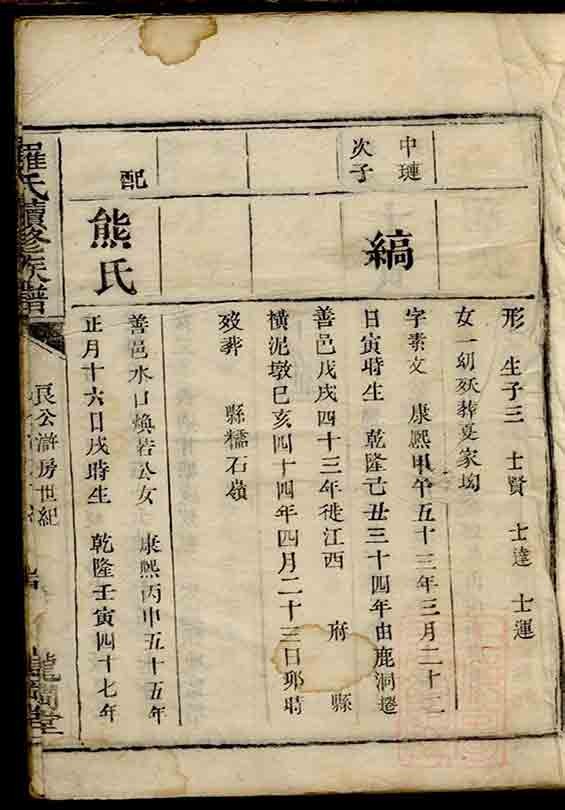 形 生子三 士賢 士達 士運
女一幼殀葬夏家坳
中璉
次子
縞
字素文 康熙甲午五十三年三月二十二
日寅時生 乾隆己丑三十四年由鹿洞遷
善邑戊戌四十三年徙江西 府 縣
橫泥墩己亥四十四年四月二十三日卯時
歿葬 縣糯石嶺
配
熊氏
善邑水口煥若公女 康熙丙申五十五年
正月十六日戌時生 乾隆壬寅四十七年
羅氏續修族譜
良公滸房世紀